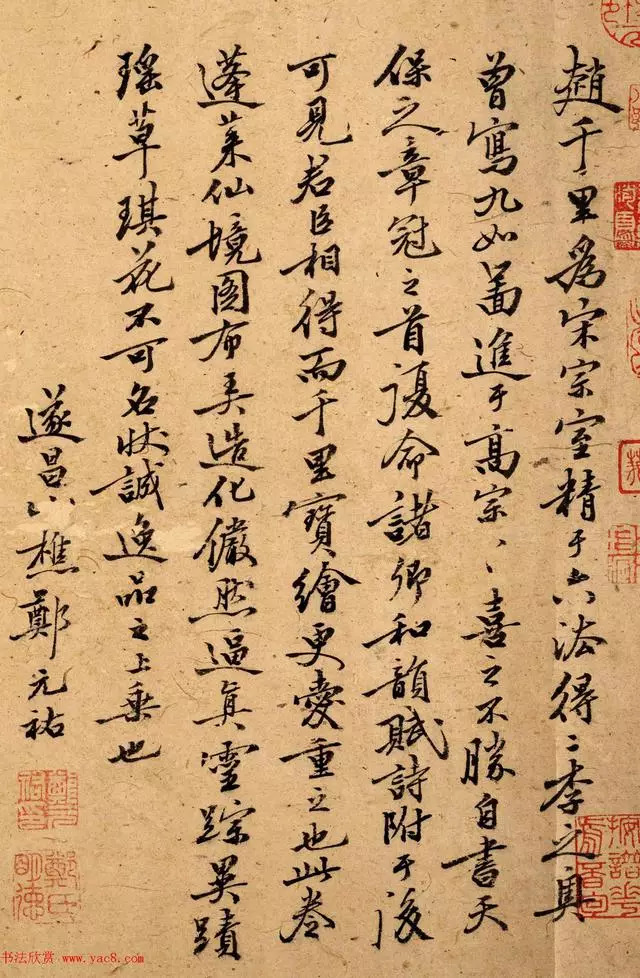 趙千里爲宋宗室精于六法得二李之奧
曾寫九如啚進于高宗〻喜之不勝自書天
保之章冠之首復命諸卿和韻賦詩附于後
可見君臣相得而千里寶繪更愛重之也此卷
蓬萊仙境图布美造化儼然逼真靈踪異蹟
瑶草琪花不可名狀誠逸品之上乘也
遂昌山樵鄭元祐
鄭氏
明德
书法欣赏 www.yac8.com